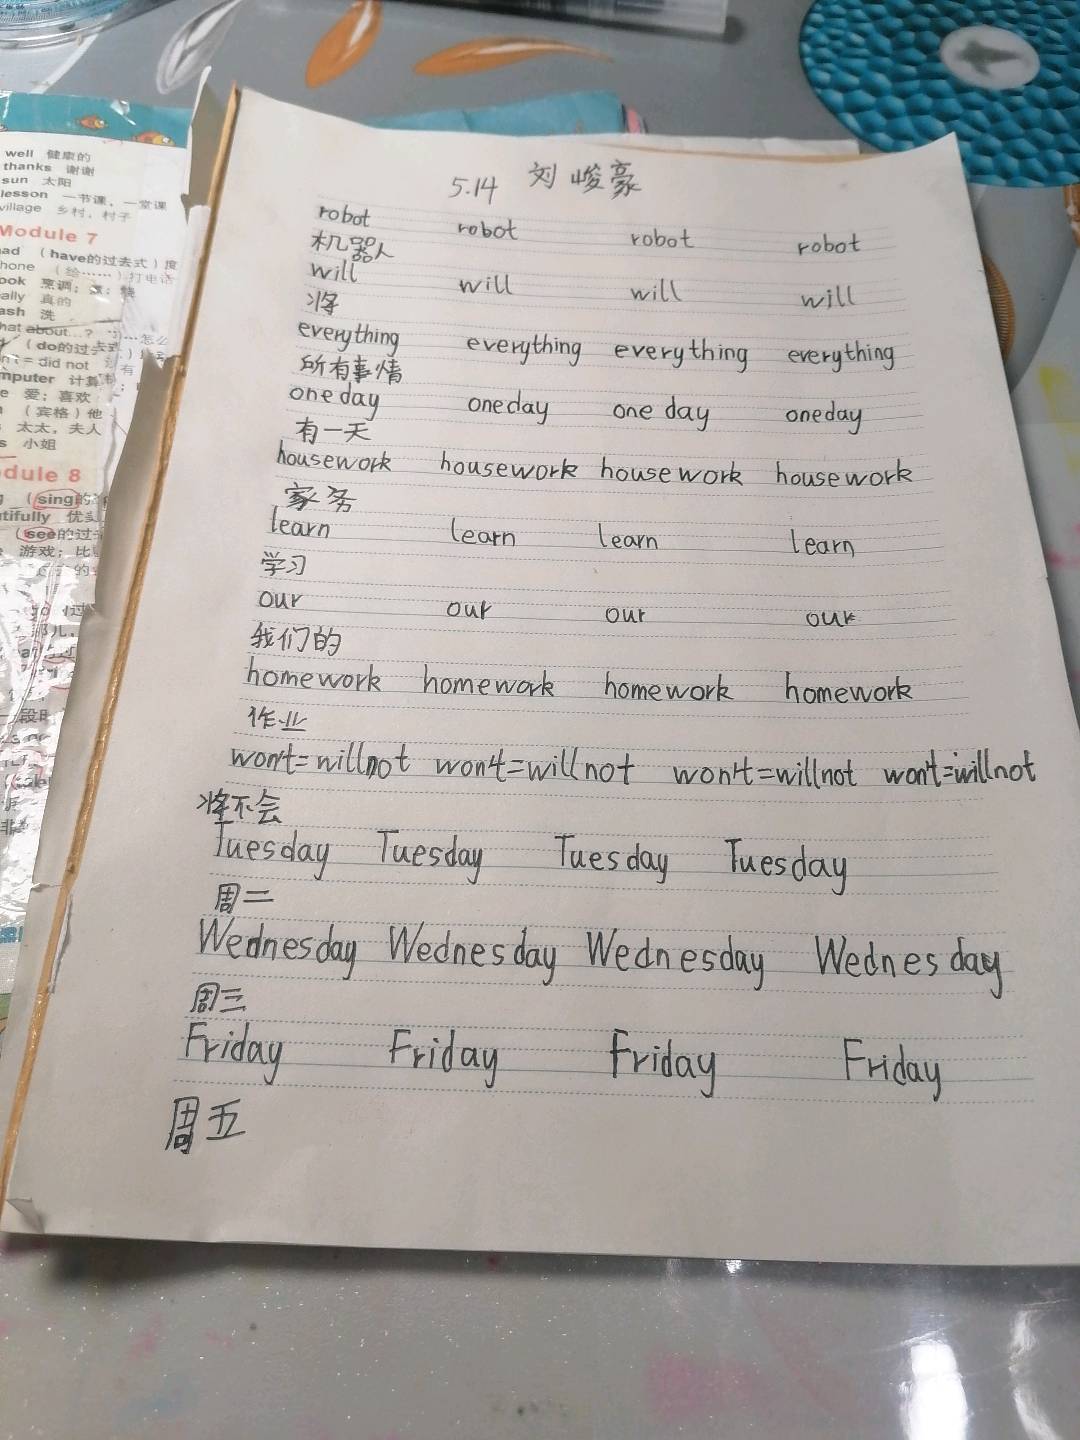 well 健康的
thanks 谢谢
sun 太阳
lesson 一节课，一堂课
village 乡村，村子
Module 7
(have的过去式)
打电话
烹调；煮；烧
真的
洗
hat about...?
(do的过去式)
= did not
mputer 计算
爱；喜欢
(宾格) 他
太太，夫人
小姐
dule 8
(sing的
tifully
(see的过
游戏；比
5.14 刘峻豪
robot robot robot robot
机器人
will will will will
将
everything everything everything everything
所有事情
one day oneday one day oneday
有一天
housework housework housework housework
家务
learn learn learn learn
学习
our our our our
我们的
homework homework homework homework
作业
won't=willnot won't=will not won't=willnot won't=willnot
将不会
Tuesday Tuesday Tuesday Tuesday
周二
Wednesday Wednesday Wednesday Wednesday
周三
Friday Friday Friday Friday
周五